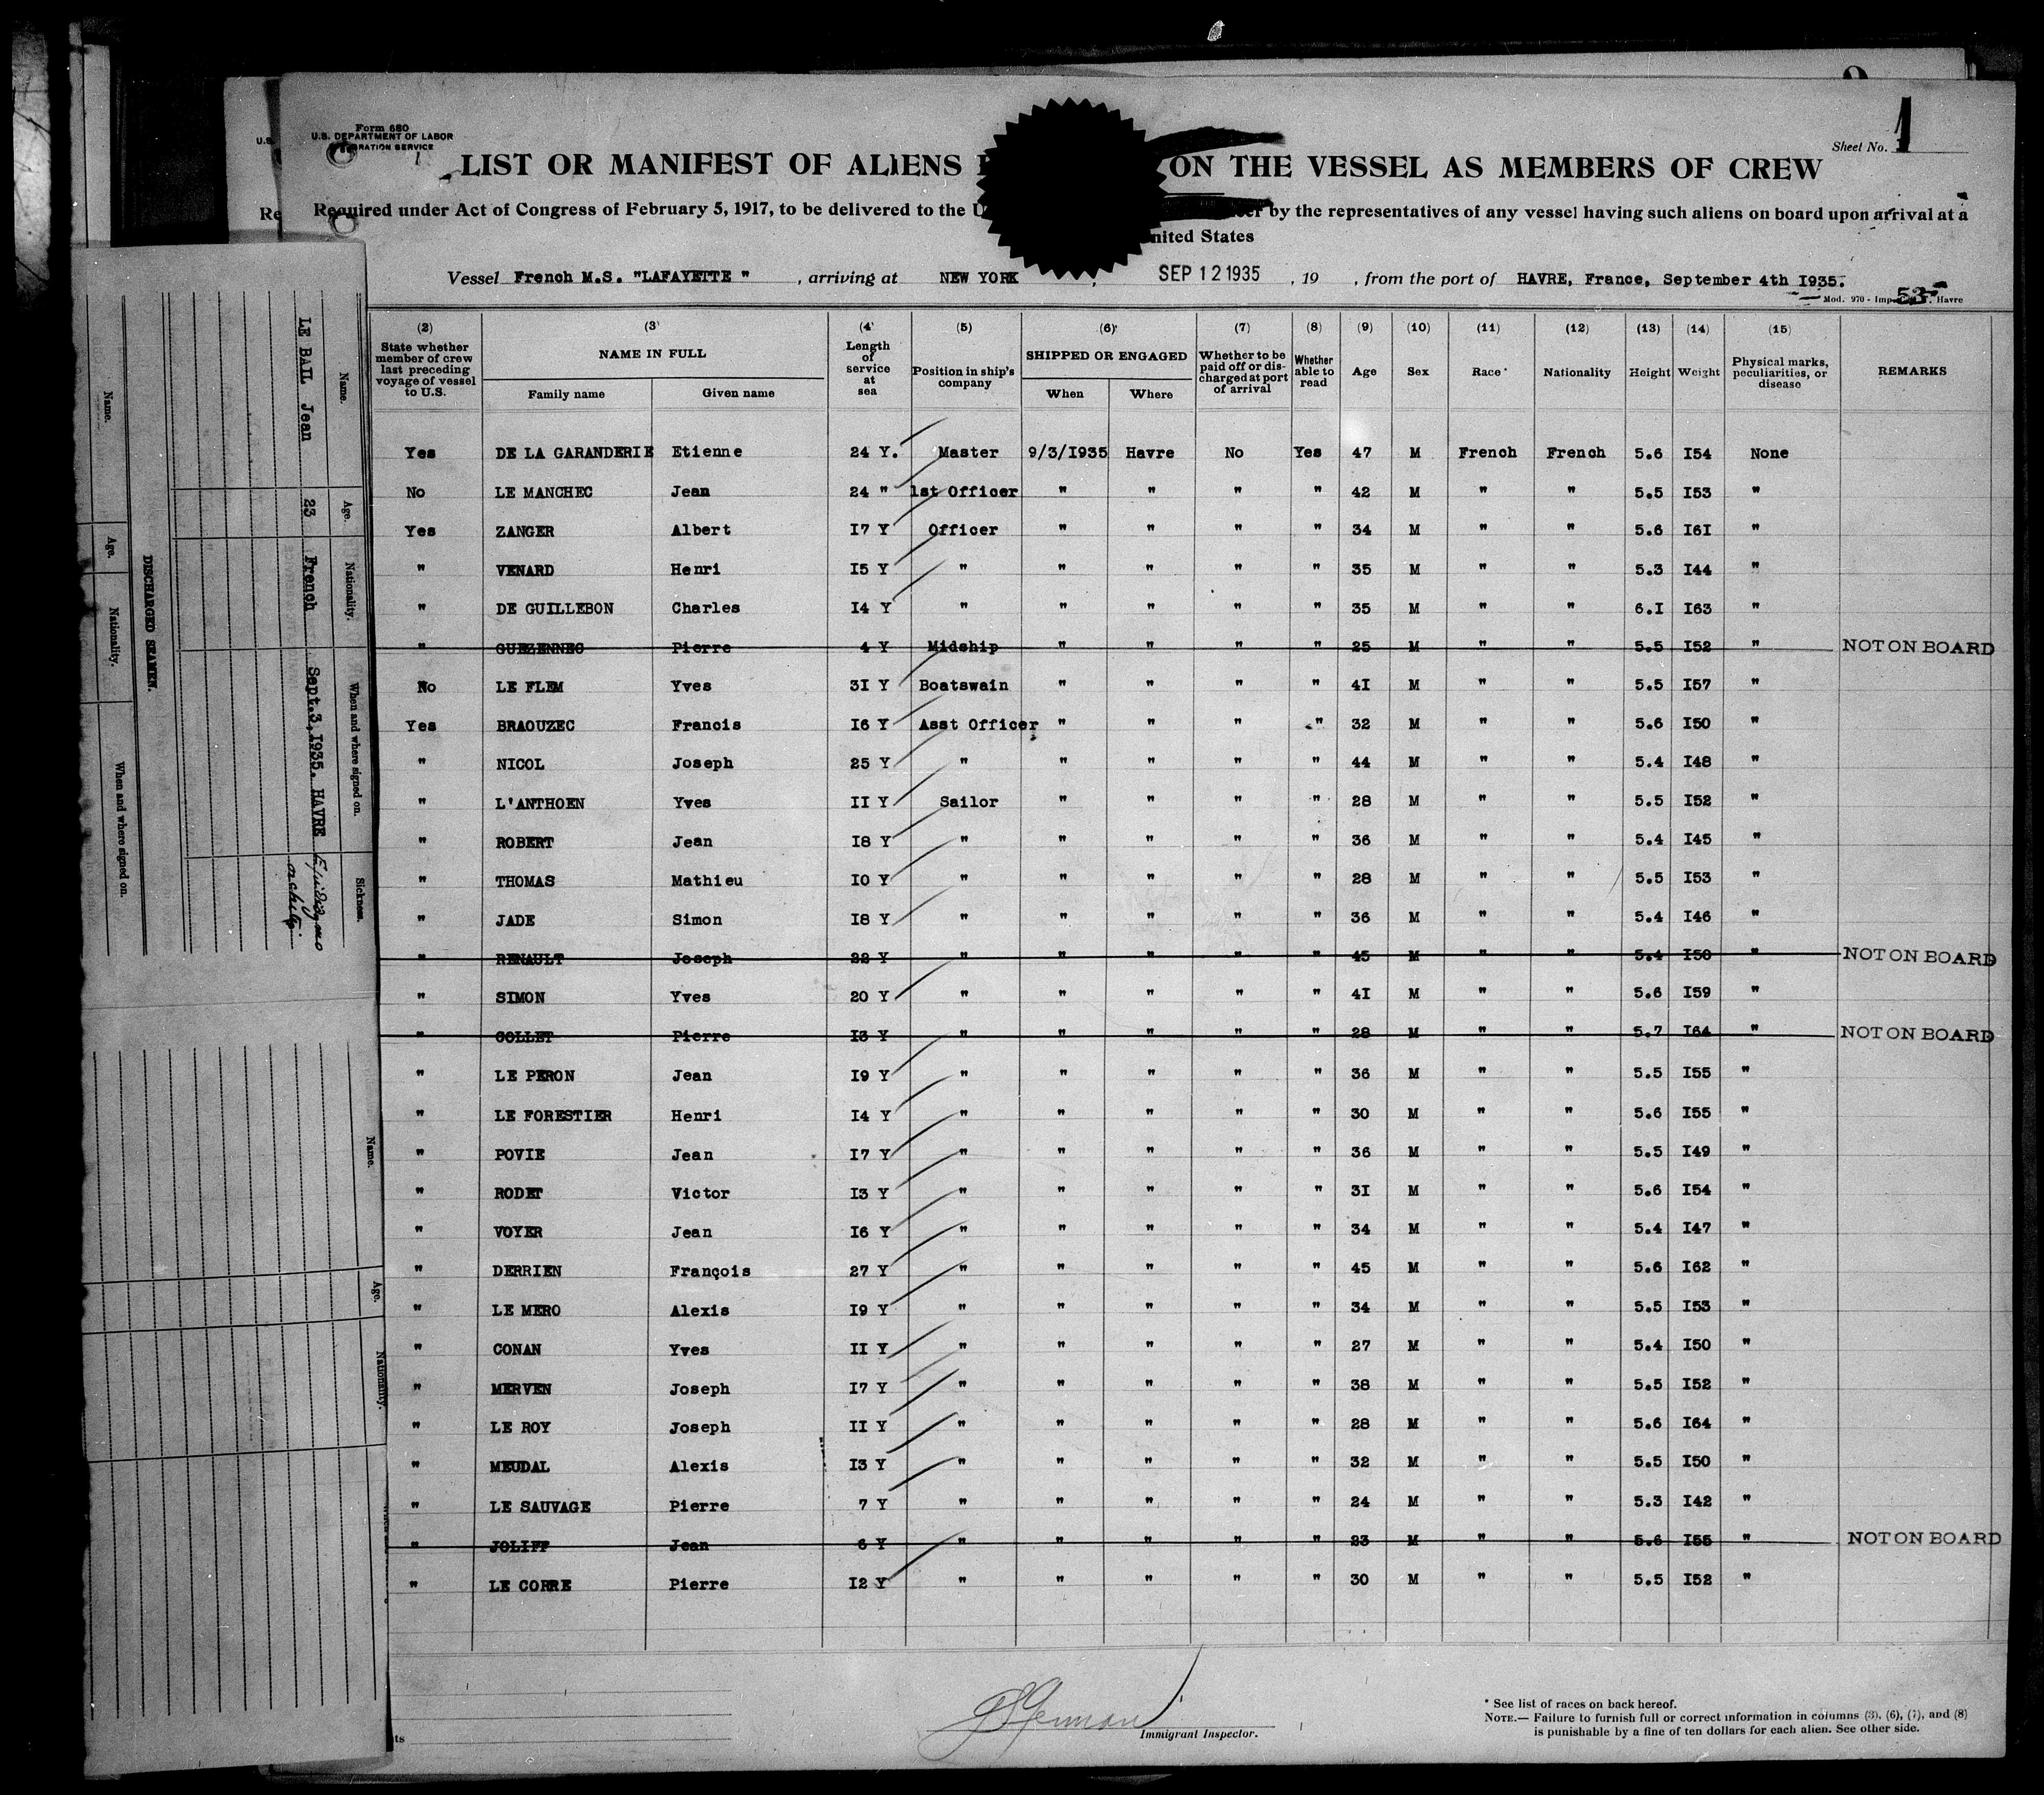 Form 680
U.S. DEPARTMENT OF LABOR
Sheet No. 1
LIST OR MANIFEST OF ALIENS ON THE VESSEL AS MEMBERS OF CREW
Required under Act of Congress of February 5, 1917, to be delivered to the by the representatives of any vessel having such aliens on board upon arrival at a
United States
Vessel French M.S. "LAFAYETTE", arriving at NEW YORK, SEP 12 1935, 19 , from the port of HAVRE, France, September 4th 1935.
Mod. 970 - Havre
(2) (3) (4) (5) (6) (7) (8) (9) (10) (11) (12) (13) (14) (15)
State whether member of crew last preceding voyage of vessel to U.S. NAME IN FULL Family name Given name Length of service at sea Position in ship's company SHIPPED OR ENGAGED When Where Whether to be paid off or discharged at port of arrival Whether able to read Age Sex Race* Nationality Height Weight Physical marks, peculiarities, or disease REMARKS
Yes DE LA GARANDERIE Etienne 24 Y. Master 9/3/1935 Havre No Yes 47 M French French 5.6 154 None
No LE MANCHEC Jean 24 " 1st Officer " " " " 42 M " " 5.5 153 "
Yes ZANGER Albert 17 Y Officer " " " " 34 M " " 5.6 161 "
" VENARD Henri 15 Y " " " " " 35 M " " 5.3 144 "
" DE GUILLEBON Charles 14 Y " " " " " 35 M " " 6.1 163 "
" GUEZENNEC Pierre 4 Y Midship " " " " 25 M " " 5.5 152 " NOT ON BOARD
No LE FLEM Yves 31 Y Boatswain " " " " 41 M " " 5.5 157 "
Yes BRAOUZEC Francis 16 Y Asst Officer " " " " 32 M " " 5.6 150 "
" NICOL Joseph 25 Y " " " " " 44 M " " 5.4 148 "
" L'ANTHOEN Yves 11 Y Sailor " " " " 28 M " " 5.5 152 "
" ROBERT Jean 18 Y " " " " " 36 M " " 5.4 145 "
" THOMAS Mathieu 10 Y " " " " " 28 M " " 5.5 153 "
" JADE Simon 18 Y " " " " " 36 M " " 5.4 146 "
" RENAULT Joseph 22 Y " " " " " 45 M " " 5.4 150 " NOT ON BOARD
" SIMON Yves 20 Y " " " " " 41 M " " 5.6 159 "
" COLLET Pierre 13 Y " " " " " 28 M " " 5.7 164 " NOT ON BOARD
" LE PERON Jean 19 Y " " " " " 36 M " " 5.5 155 "
" LE FORESTIER Henri 14 Y " " " " " 30 M " " 5.6 155 "
" POVIE Jean 17 Y " " " " " 36 M " " 5.5 149 "
" RODET Victor 13 Y " " " " " 31 M " " 5.6 154 "
" VOYER Jean 16 Y " " " " " 34 M " " 5.4 147 "
" DERRIEN François 27 Y " " " " " 45 M " " 5.6 162 "
" LE MERO Alexis 19 Y " " " " " 34 M " " 5.5 153 "
" CONAN Yves 11 Y " " " " " 27 M " " 5.4 150 "
" MERVEN Joseph 17 Y " " " " " 38 M " " 5.5 152 "
" LE ROY Joseph 11 Y " " " " " 28 M " " 5.6 164 "
" MEUDAL Alexis 13 Y " " " " " 32 M " " 5.5 150 "
" LE SAUVAGE Pierre 7 Y " " " " " 24 M " " 5.3 142 "
" JOLIFF Jean 6 Y " " " " " 23 M " " 5.6 155 " NOT ON BOARD
" LE CORRE Pierre 12 Y " " " " " 30 M " " 5.5 152 "
Immigrant Inspector.
* See list of races on back hereof.
NOTE.— Failure to furnish full or correct information in columns (3), (6), (7), and (8)
is punishable by a fine of ten dollars for each alien. See other side.
Name. Age. Nationality. When and where signed on. Sickness.
LE BAIL Jean 23 French Sept.3,1935. HAVRE
DISCHARGED SEAMEN.
Name. Age. Nationality. When and where signed on.
Name. Age. Nationality.